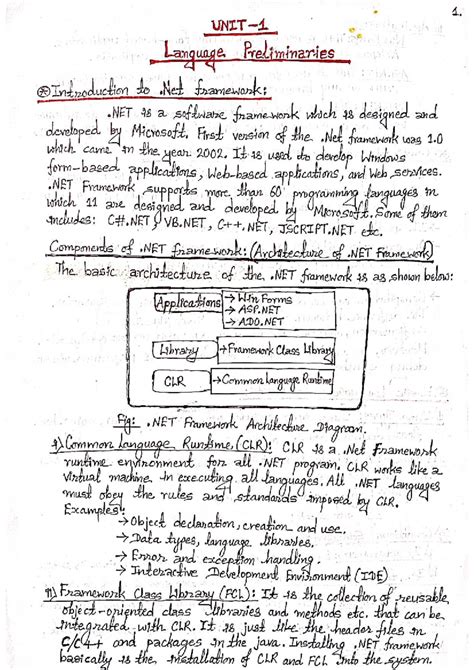 1.
UNIT-1
Language Preliminaries
Introduction to .Net framework:
.NET is a software framework which is designed and
developed by Microsoft. First version of the .Net framework was 1.0
which came in the year 2002. It is used to develop Windows
form-based applications, Web-based applications, and Web services.
.NET Framework supports more than 60 programming languages in
which 11 are designed and developed by Microsoft. Some of them
includes: C#.NET, VB.NET, C++.NET, JSCRIPT.NET etc.
Components of .NET framework: (Architecture of .NET Framework)
The basic architecture of the .NET framework is as shown below:
Applications → Win Forms
→ ASP.NET
→ ADO.NET
Library → Framework Class Library
CLR → Common Language Runtime
Fig: .NET Framework Architecture Diagram.
i) Common Language Runtime (CLR): CLR is a .Net Framework
runtime environment for all .NET program. CLR works like a
virtual machine in executing all languages. All .NET languages
must obey the rules and standards imposed by CLR.
Examples:
→ Object declaration, creation and use.
→ Data types, language libraries.
→ Error and exception handling.
→ Interactive Development Environment (IDE)
ii) Framework Class Library (FCL): It is the collection of reusable,
object-oriented class libraries and methods etc. that can be
integrated with CLR. It is just like the header files in
C/C++ and packages in the java. Installing .NET framework
basically is the installation of CLR and FCL into the system